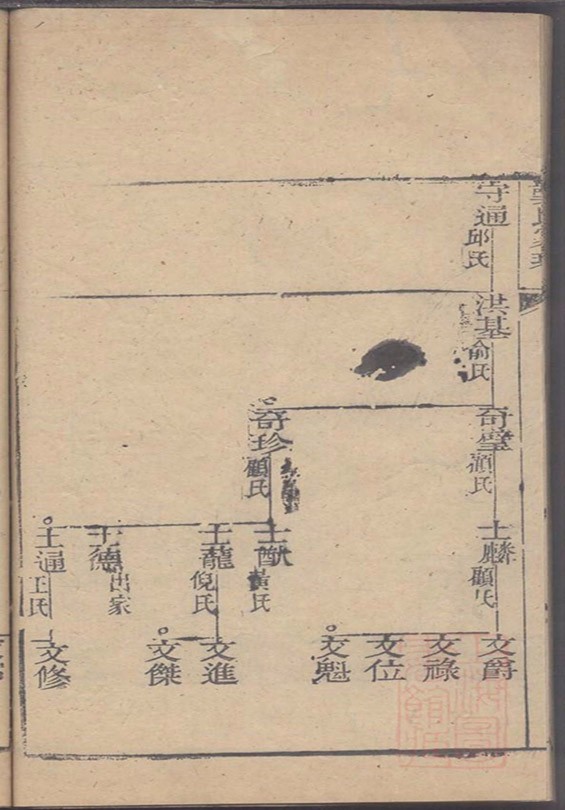 守通 邱氏
洪基 俞氏
奇璧 顧氏
奇珍 顧氏
士麟 顧氏
士猷 黃氏
士龍 倪氏
士德 出家
士通 王氏
文爵
文祿
文位
文魁
文進
文傑
文修